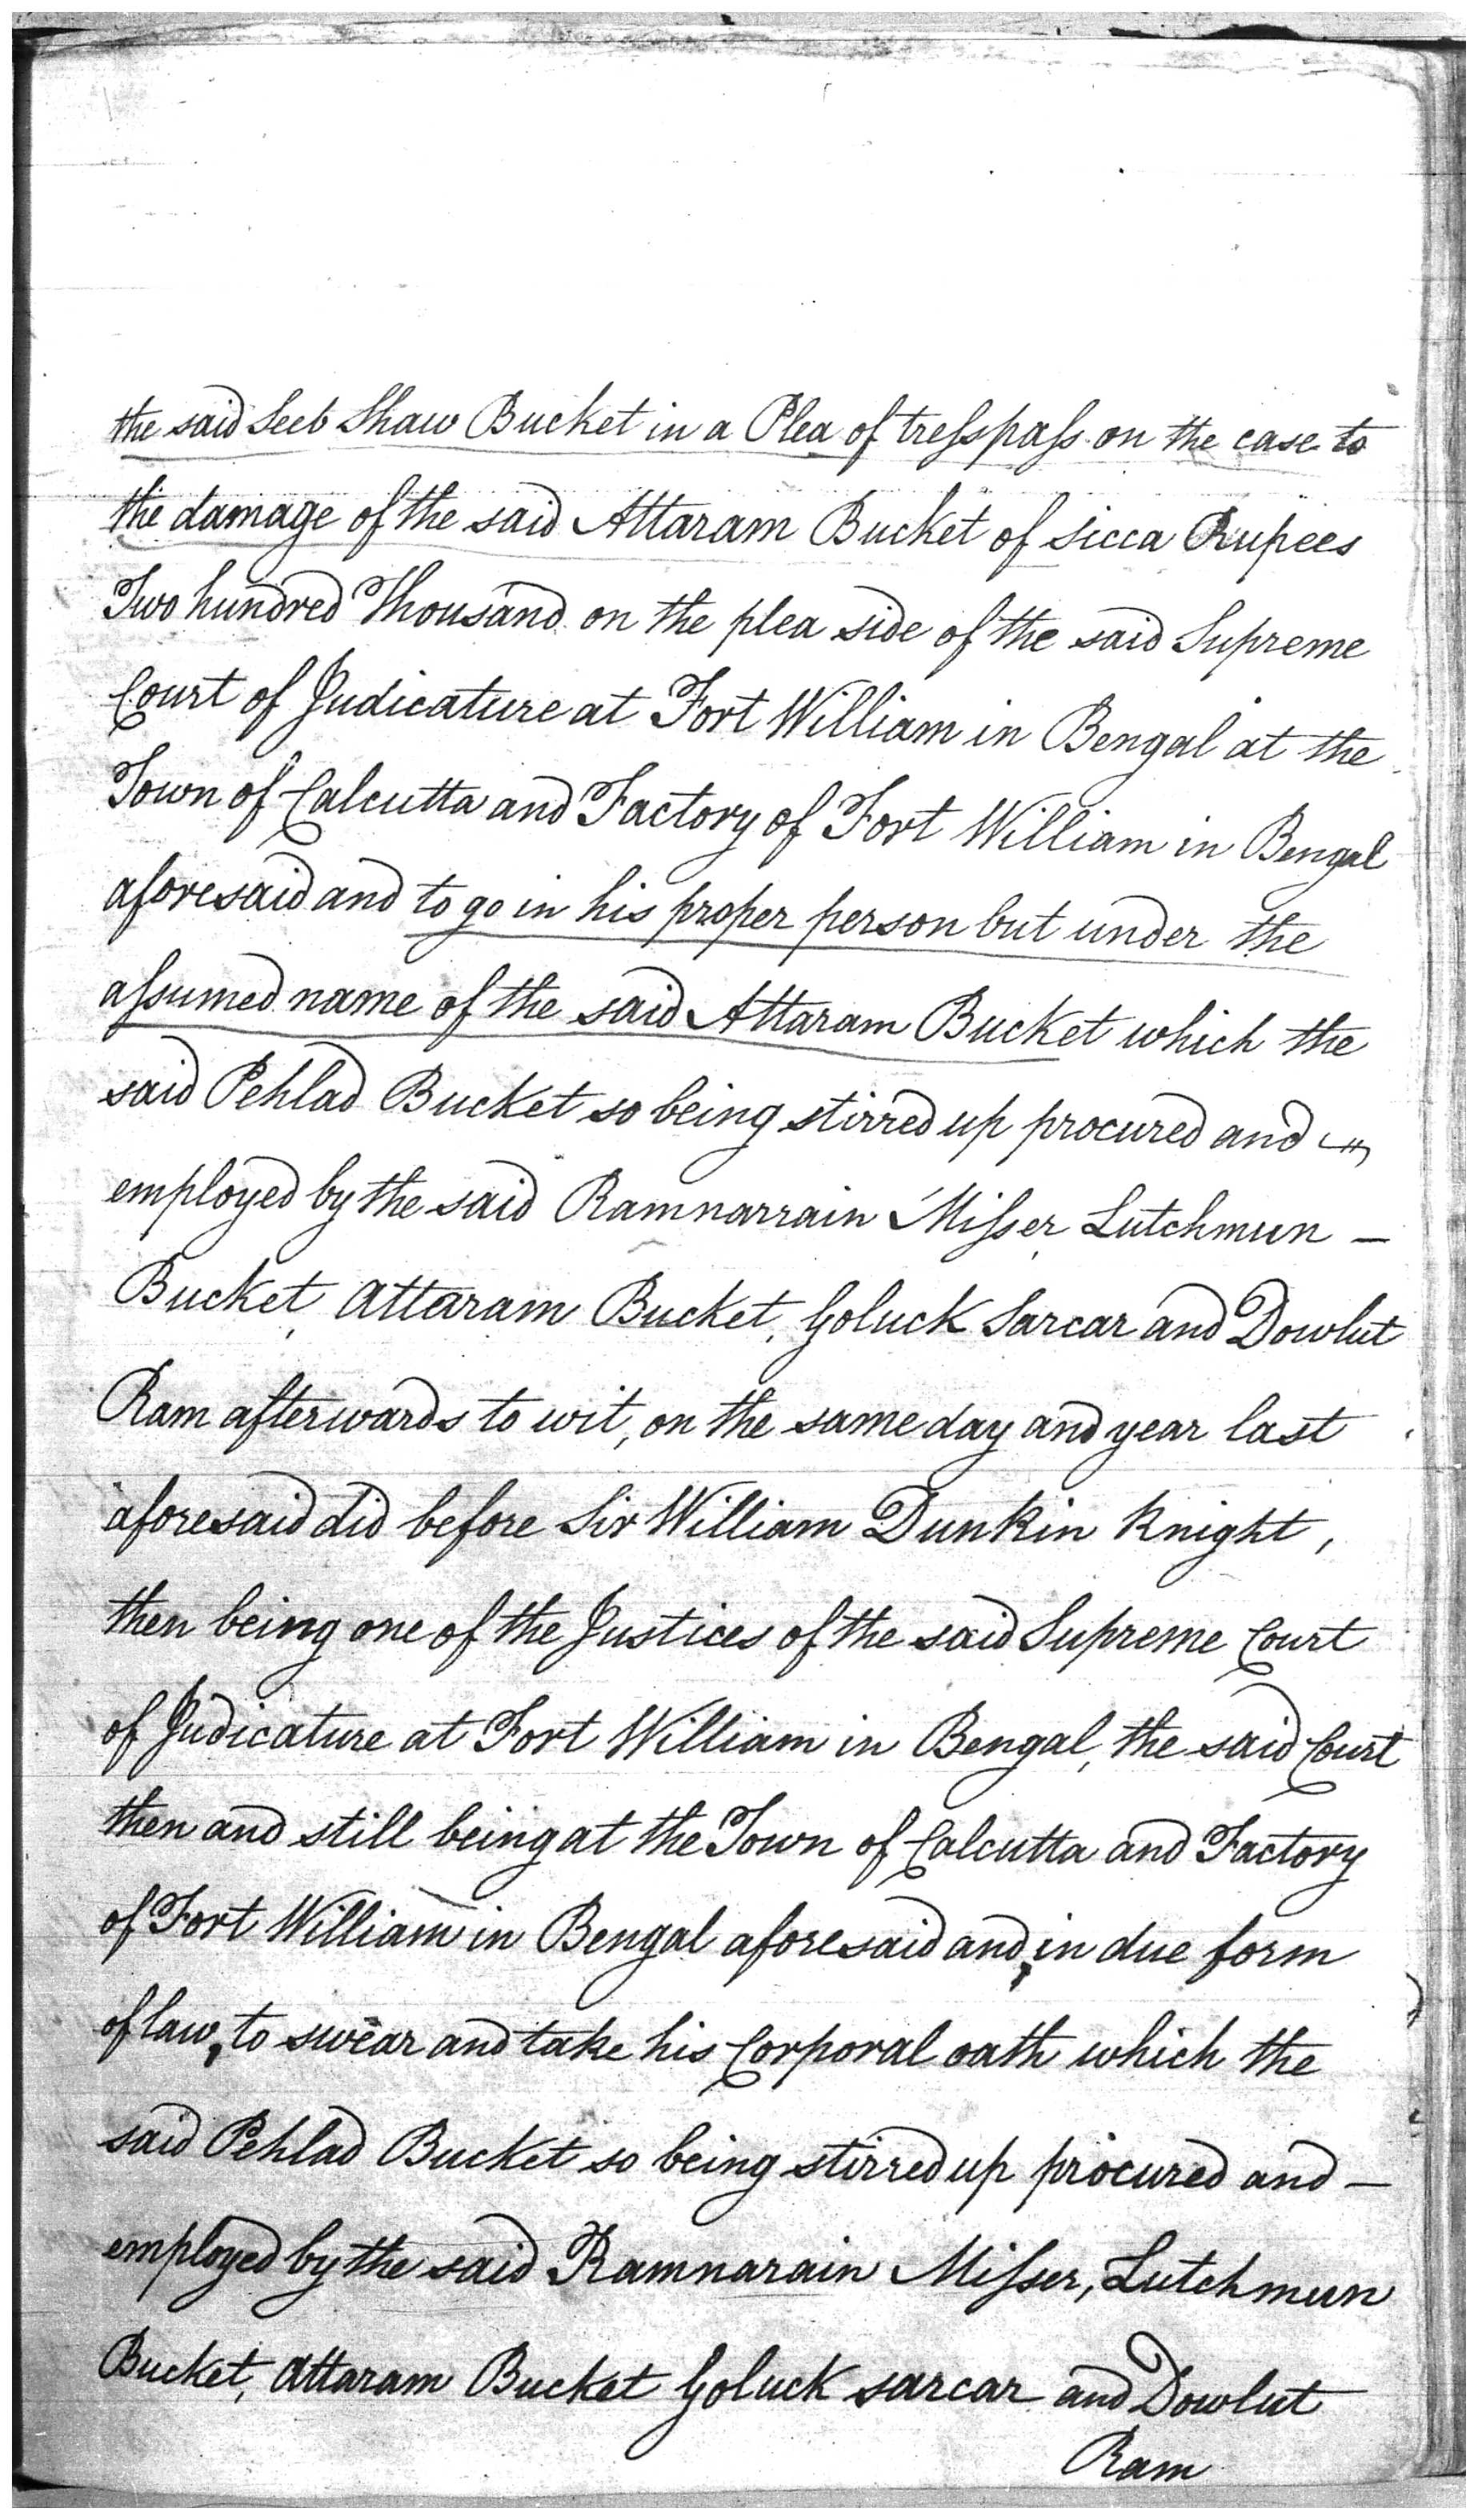 the said Seeb Shaw Bucket in a Plea of tresspass on the case to
the damage of the said Attaram Bucket of sicca Rupees
Two hundred Thousand on the plea side of the said Supreme
Court of Judicature at Fort William in Bengal at the
Town of Calcutta and Factory of Fort William in Bengal
aforesaid and to go in his proper person but under the
assumed name of the said Attaram Bucket which the
said Pehlad Bucket so being stirred up procured and
employed by the said Ramnarrain Misser Lutchmun —
Bucket, Attaram Bucket, Goluck Sarcar and Dowlut
Ram afterwards to wit, on the same day and year last
aforesaid did before Sir William Dunkin Knight,
then being one of the Justices of the said Supreme Court
of Judicature at Fort William in Bengal, the said Court
then and still being at the Town of Calcutta and Factory
of Fort William in Bengal aforesaid and, in due form
of law, to swear and take his Corporal oath which the
said Pehlad Bucket so being stirred up procured and —
employed by the said Ramnarain Misser, Lutchmun
Bucket, Attaram Bucket Goluck sarcar and Dowlut
Ram